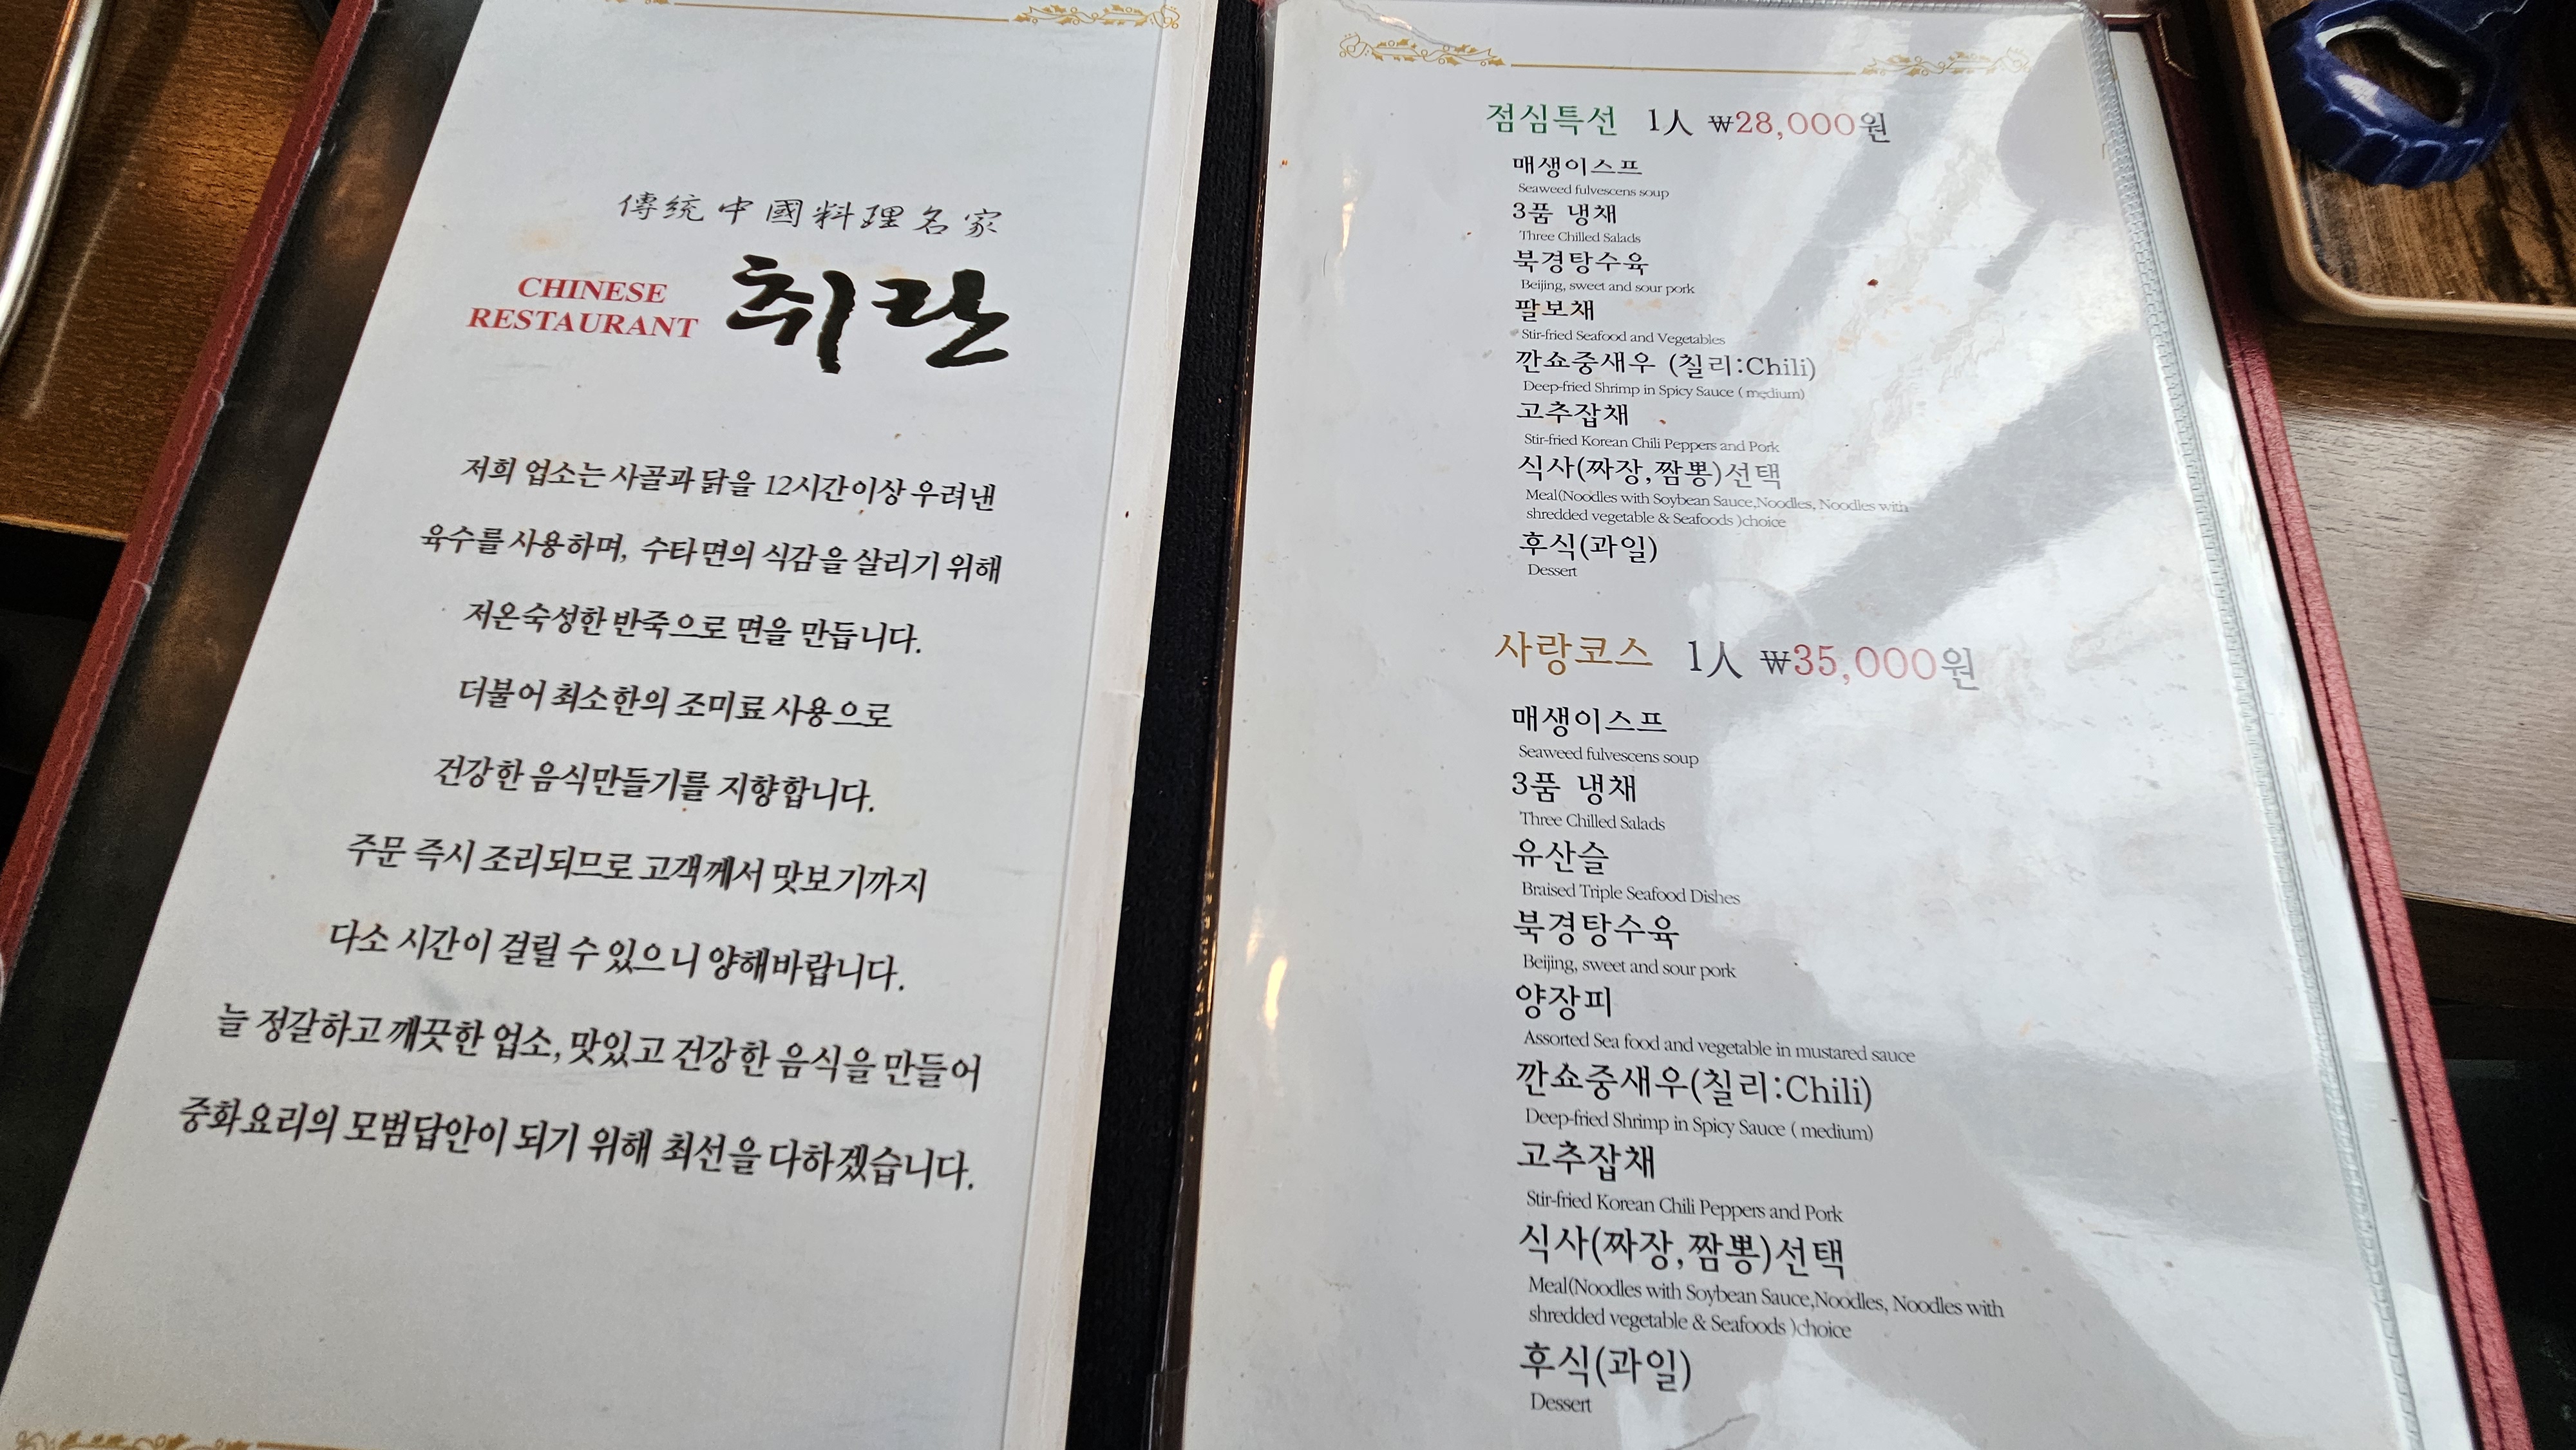 傳統中國料理名家
CHINESE
RESTAURANT
취란
저희 업소는 사골과 닭을 12시간이상 우려낸
육수를 사용하며, 수타면의 식감을 살리기 위해
저온숙성한 반죽으로 면을 만듭니다.
더불어 최소한의 조미료 사용으로
건강한 음식만들기를 지향합니다.
주문 즉시 조리되므로 고객께서 맛보기까지
다소 시간이 걸릴 수 있으니 양해바랍니다.
늘 정갈하고 깨끗한 업소, 맛있고 건강한 음식을 만들어
중화요리의 모범답안이 되기 위해 최선을 다하겠습니다.
점심특선 1人 ₩28,000원
매생이스프
Seaweed fulvescens soup
3품 냉채
Three Chilled Salads
북경탕수육
Beijing, sweet and sour pork
팔보채
Stir-fried Seafood and Vegetables
깐쇼중새우 (칠리:Chili)
Deep-fried Shrimp in Spicy Sauce ( medium)
고추잡채
Stir-fried Korean Chili Peppers and Pork
식사(짜장,짬뽕)선택
Meal(Noodles with Soybean Sauce,Noodles, Noodles with
shredded vegetable & Seafoods )choice
후식(과일)
Dessert
사랑코스 1人 ₩35,000원
매생이스프
Seaweed fulvescens soup
3품 냉채
Three Chilled Salads
유산슬
Braised Triple Seafood Dishes
북경탕수육
Beijing, sweet and sour pork
양장피
Assorted Sea food and vegetable in mustared sauce
깐쇼중새우(칠리:Chili)
Deep-fried Shrimp in Spicy Sauce ( medium)
고추잡채
Stir-fried Korean Chili Peppers and Pork
식사(짜장,짬뽕)선택
Meal(Noodles with Soybean Sauce,Noodles, Noodles with
shredded vegetable & Seafoods )choice
후식(과일)
Dessert